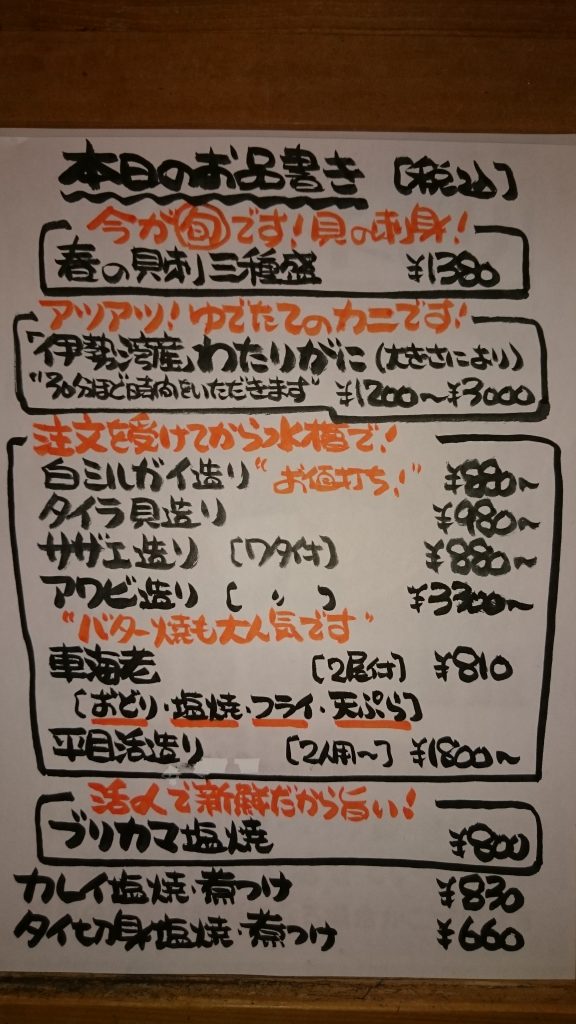 本日のお品書き [税込]
今が旬です!貝の刺身!
春の貝刺三種盛 ¥1380
アツアツ!ゆでたてのカニです!
「伊勢湾産」わたりがに(大きさにより)
"30分ほど時間をいただきます" ¥1200〜¥3000
注文を受けてから水槽で!
白ミルガイ造り "お値打ち!" ¥880〜
タイラ貝造り ¥980〜
サザエ造り [ワタ付] ¥880〜
アワビ造り [ 〃 ] ¥3300〜
"バター焼も大人気です"
車海老 [2尾付] ¥810
[おどり・塩焼・フライ・天ぷら]
平目活造り [2人用〜] ¥1800〜
活〆で新鮮だから旨い!
ブリカマ塩焼 ¥800
カレイ塩焼・煮つけ ¥830
タイ切身塩焼・煮つけ ¥660